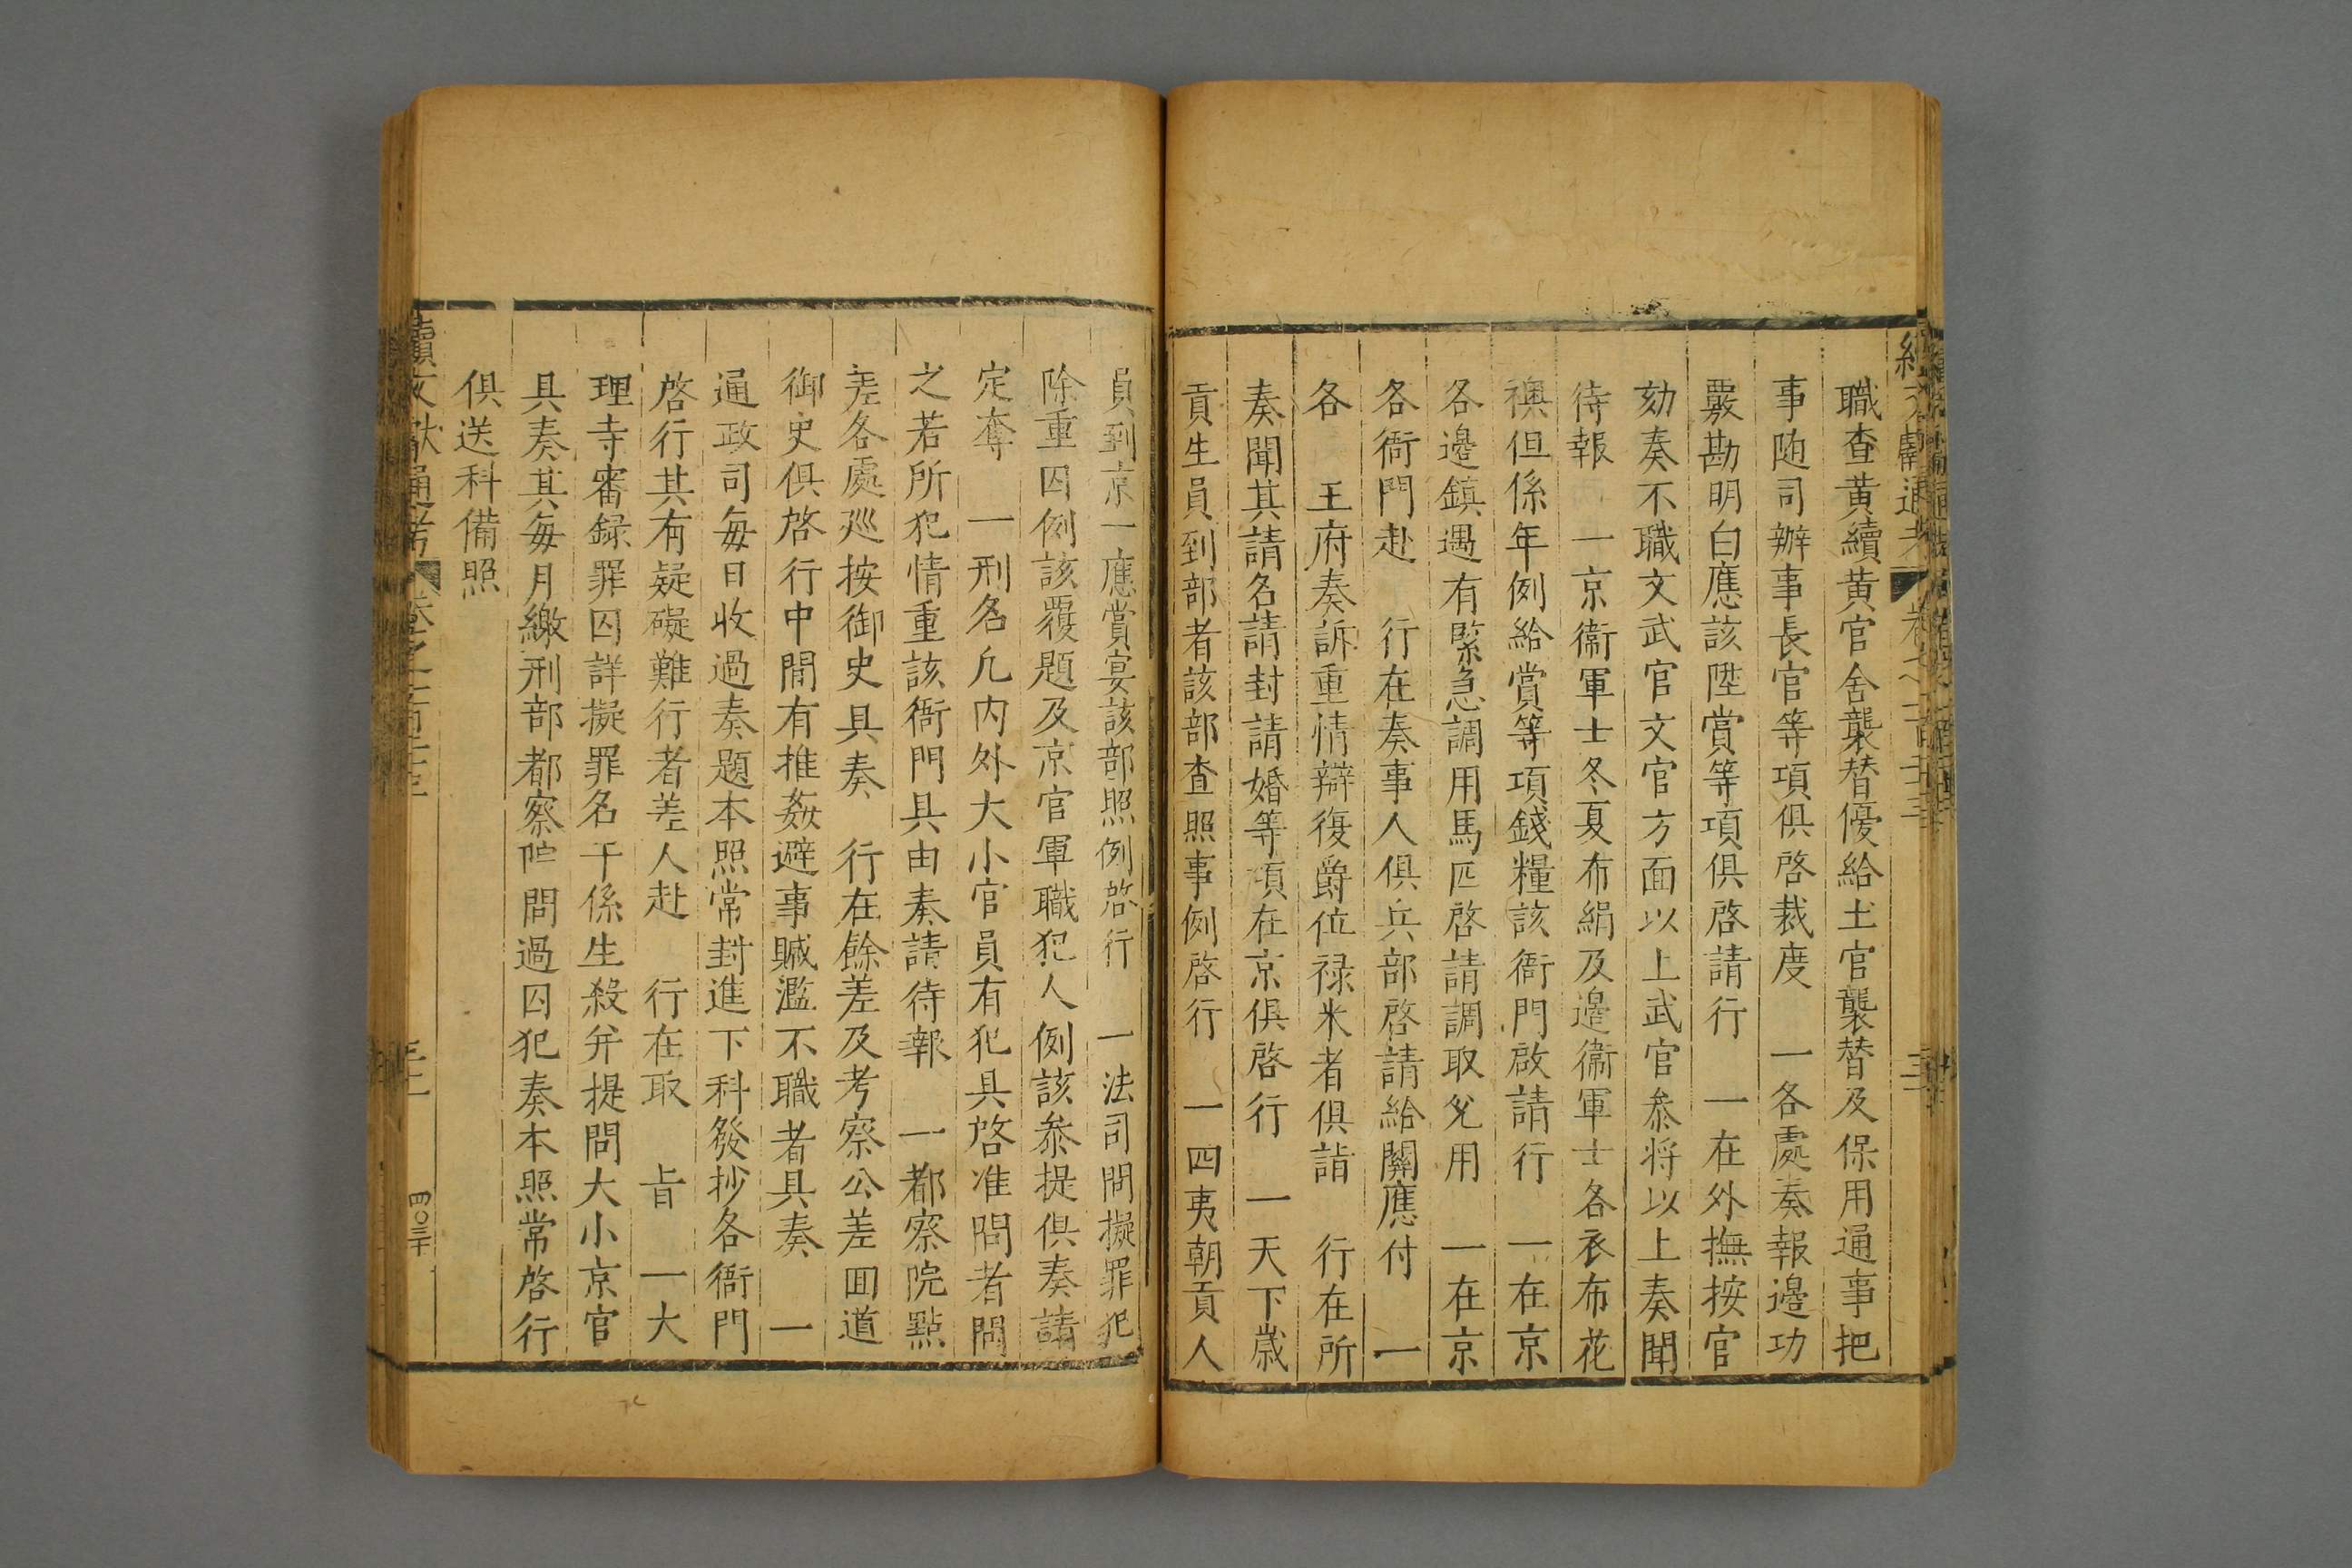 職查黄續黄官舍襲替優給土官襲替及保用通事把
事随司辦事長官等項俱啓裁度　一各處奏報邊功
覈勘明白應該陞賞等項俱啓請行　一在外撫按官
劾奏不職文武官文官方面以上武官叅将以上奏聞
待報　一京衞軍士冬夏布絹及邊衞軍士各衣布花
襖但係年例給賞等項錢糧該衙門啟請行　一在京
各邊鎮遇有緊急調用馬匹啓請調取兊用　一在京
各衙門赴　行在奏事人俱兵部啓請給關應付　一
各　王府奏訴重情辯復爵位禄米者俱請　行在所
奏聞其請名請封請婚等項在京俱啓行　一天下歳
貢生員到部者該部查照事例啓行　一四夷朝貢人
員到京一應賞宴該部照例啓行　一法司問擬罪犯
除重囚例該覆題及京官軍職犯人例該叅提俱奏請
定奪　一刑名凢内外大小官員有犯具啓准問者問
之若所犯情重該衙門具由奏請待報　一都察院點
差各處廵按御史具奏　行在餘差及考察公差囬道
御史俱啓行中間有推姦避事贓濫不職者具奏　一
通政司每日收過奏題本照常封進下科發抄各衙門
啓行其有疑礙難行者差人赴　行在取　㫖　一大
理寺審録罪囚詳擬罪名干係生殺并提問大小京官
具奏其每月繳刑部都察院問過囚犯奏本照常啓行
俱送科備照
續文獻通考